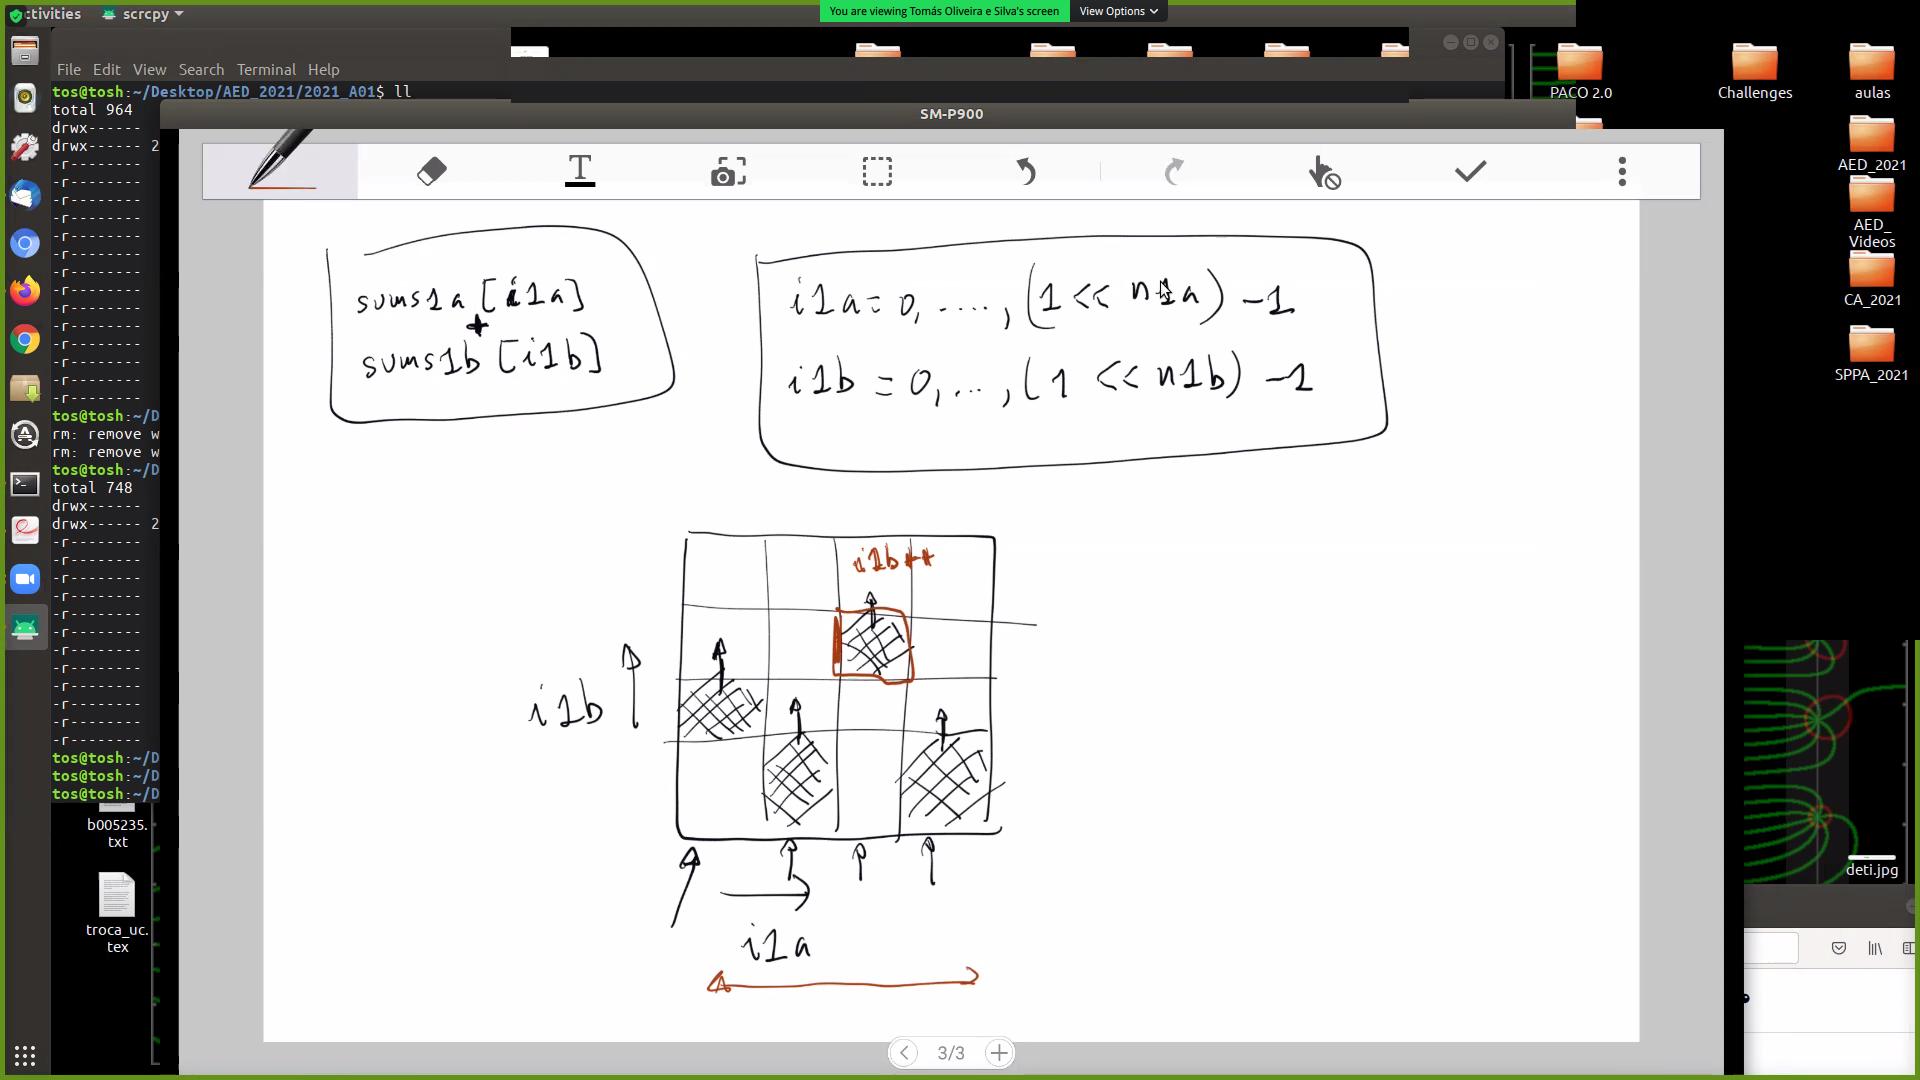 Activities
scrcpy
You are viewing Tomás Oliveira e Silva's screen
View Options
File Edit View Search Terminal Help
tos@tosh:~/Desktop/AED_2021/2021_A01$ ll
total 964
drwx------
drwx------ 2
-r--------
-r--------
-r--------
-r--------
-r--------
-r--------
-r--------
-r--------
-r--------
-r--------
-r--------
-r--------
-r--------
-r--------
tos@tosh:~/D
rm: remove w
rm: remove w
tos@tosh:~/D
total 748
drwx------
drwx------ 2
-r--------
-r--------
-r--------
-r--------
-r--------
-r--------
-r--------
-r--------
-r--------
-r--------
-r--------
-r--------
tos@tosh:~/D
tos@tosh:~/D
tos@tosh:~/D
b005235.
txt
troca_uc.
tex
SM-P900
T
sums1a [i1a]
+
sums1b [i1b]
i1a = 0, ...., (1 << n1a) -1
i1b = 0, ..., (1 << n1b) -1
i1b++
i1b
i1a
3/3
PACO 2.0
Challenges
aulas
AED_2021
AED_
Videos
CA_2021
SPPA_2021
deti.jpg